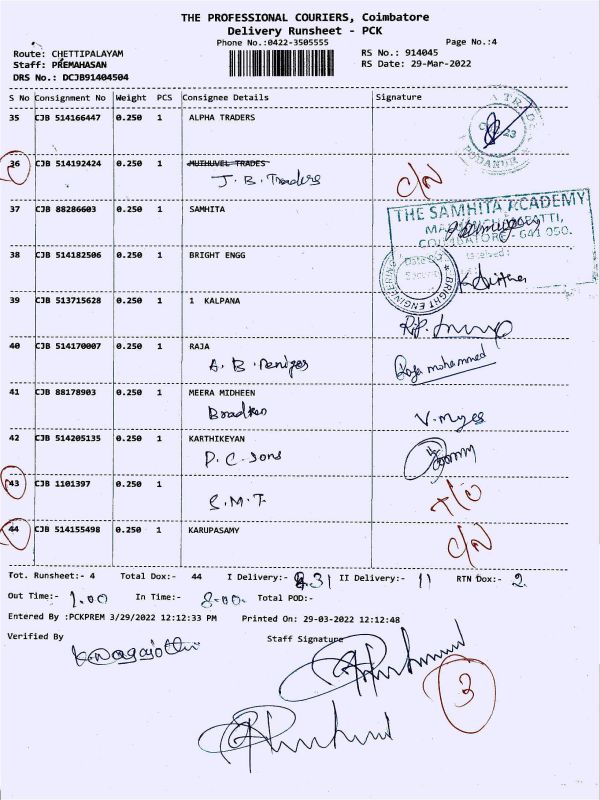 THE PROFESSIONAL COURIERS, Coimbatore
Delivery Runsheet - PCK
Phone No.:0422-3505555
Page No.:4
Route: CHETTIPALAYAM
RS No.: 914045
Staff: PREMAHASAN
RS Date: 29-Mar-2022
DRS No.: DCJB91404504
S No Consignment No Weight PCS Consignee Details Signature
35 CJB 514166447 0.250 1 ALPHA TRADERS
PODANUR
36 CJB 514192424 0.250 1 MUTHUVEL TRADES
J. B. Traders C/N
37 CJB 88286603 0.250 1 SAMHITA
THE SAMHITA ACADEMY
COIMBATORE - 641 050.
38 CJB 514182506 0.250 1 BRIGHT ENGG
BRIGHT ENGINEERING
39 CJB 513715628 0.250 1 1 KALPANA
40 CJB 514170007 0.250 1 RAJA
Raja mohammed
41 CJB 88178903 0.250 1 MEERA MIDHEEN
V. Myes
42 CJB 514205135 0.250 1 KARTHIKEYAN
P. C. Sons
43 CJB 1101397 0.250 1
S.M.T.
44 CJB 514155498 0.250 1 KARUPASAMY
C/N
Tot. Runsheet:- 4 Total Dox:- 44 I Delivery:- 31 II Delivery:- 11 RTN Dox:- 2.
Out Time:- 1.00 In Time:- 8.00. Total POD:-
Entered By :PCKPREM 3/29/2022 12:12:33 PM Printed On: 29-03-2022 12:12:48
Verified By Staff Signature
K. Nagajothi
3